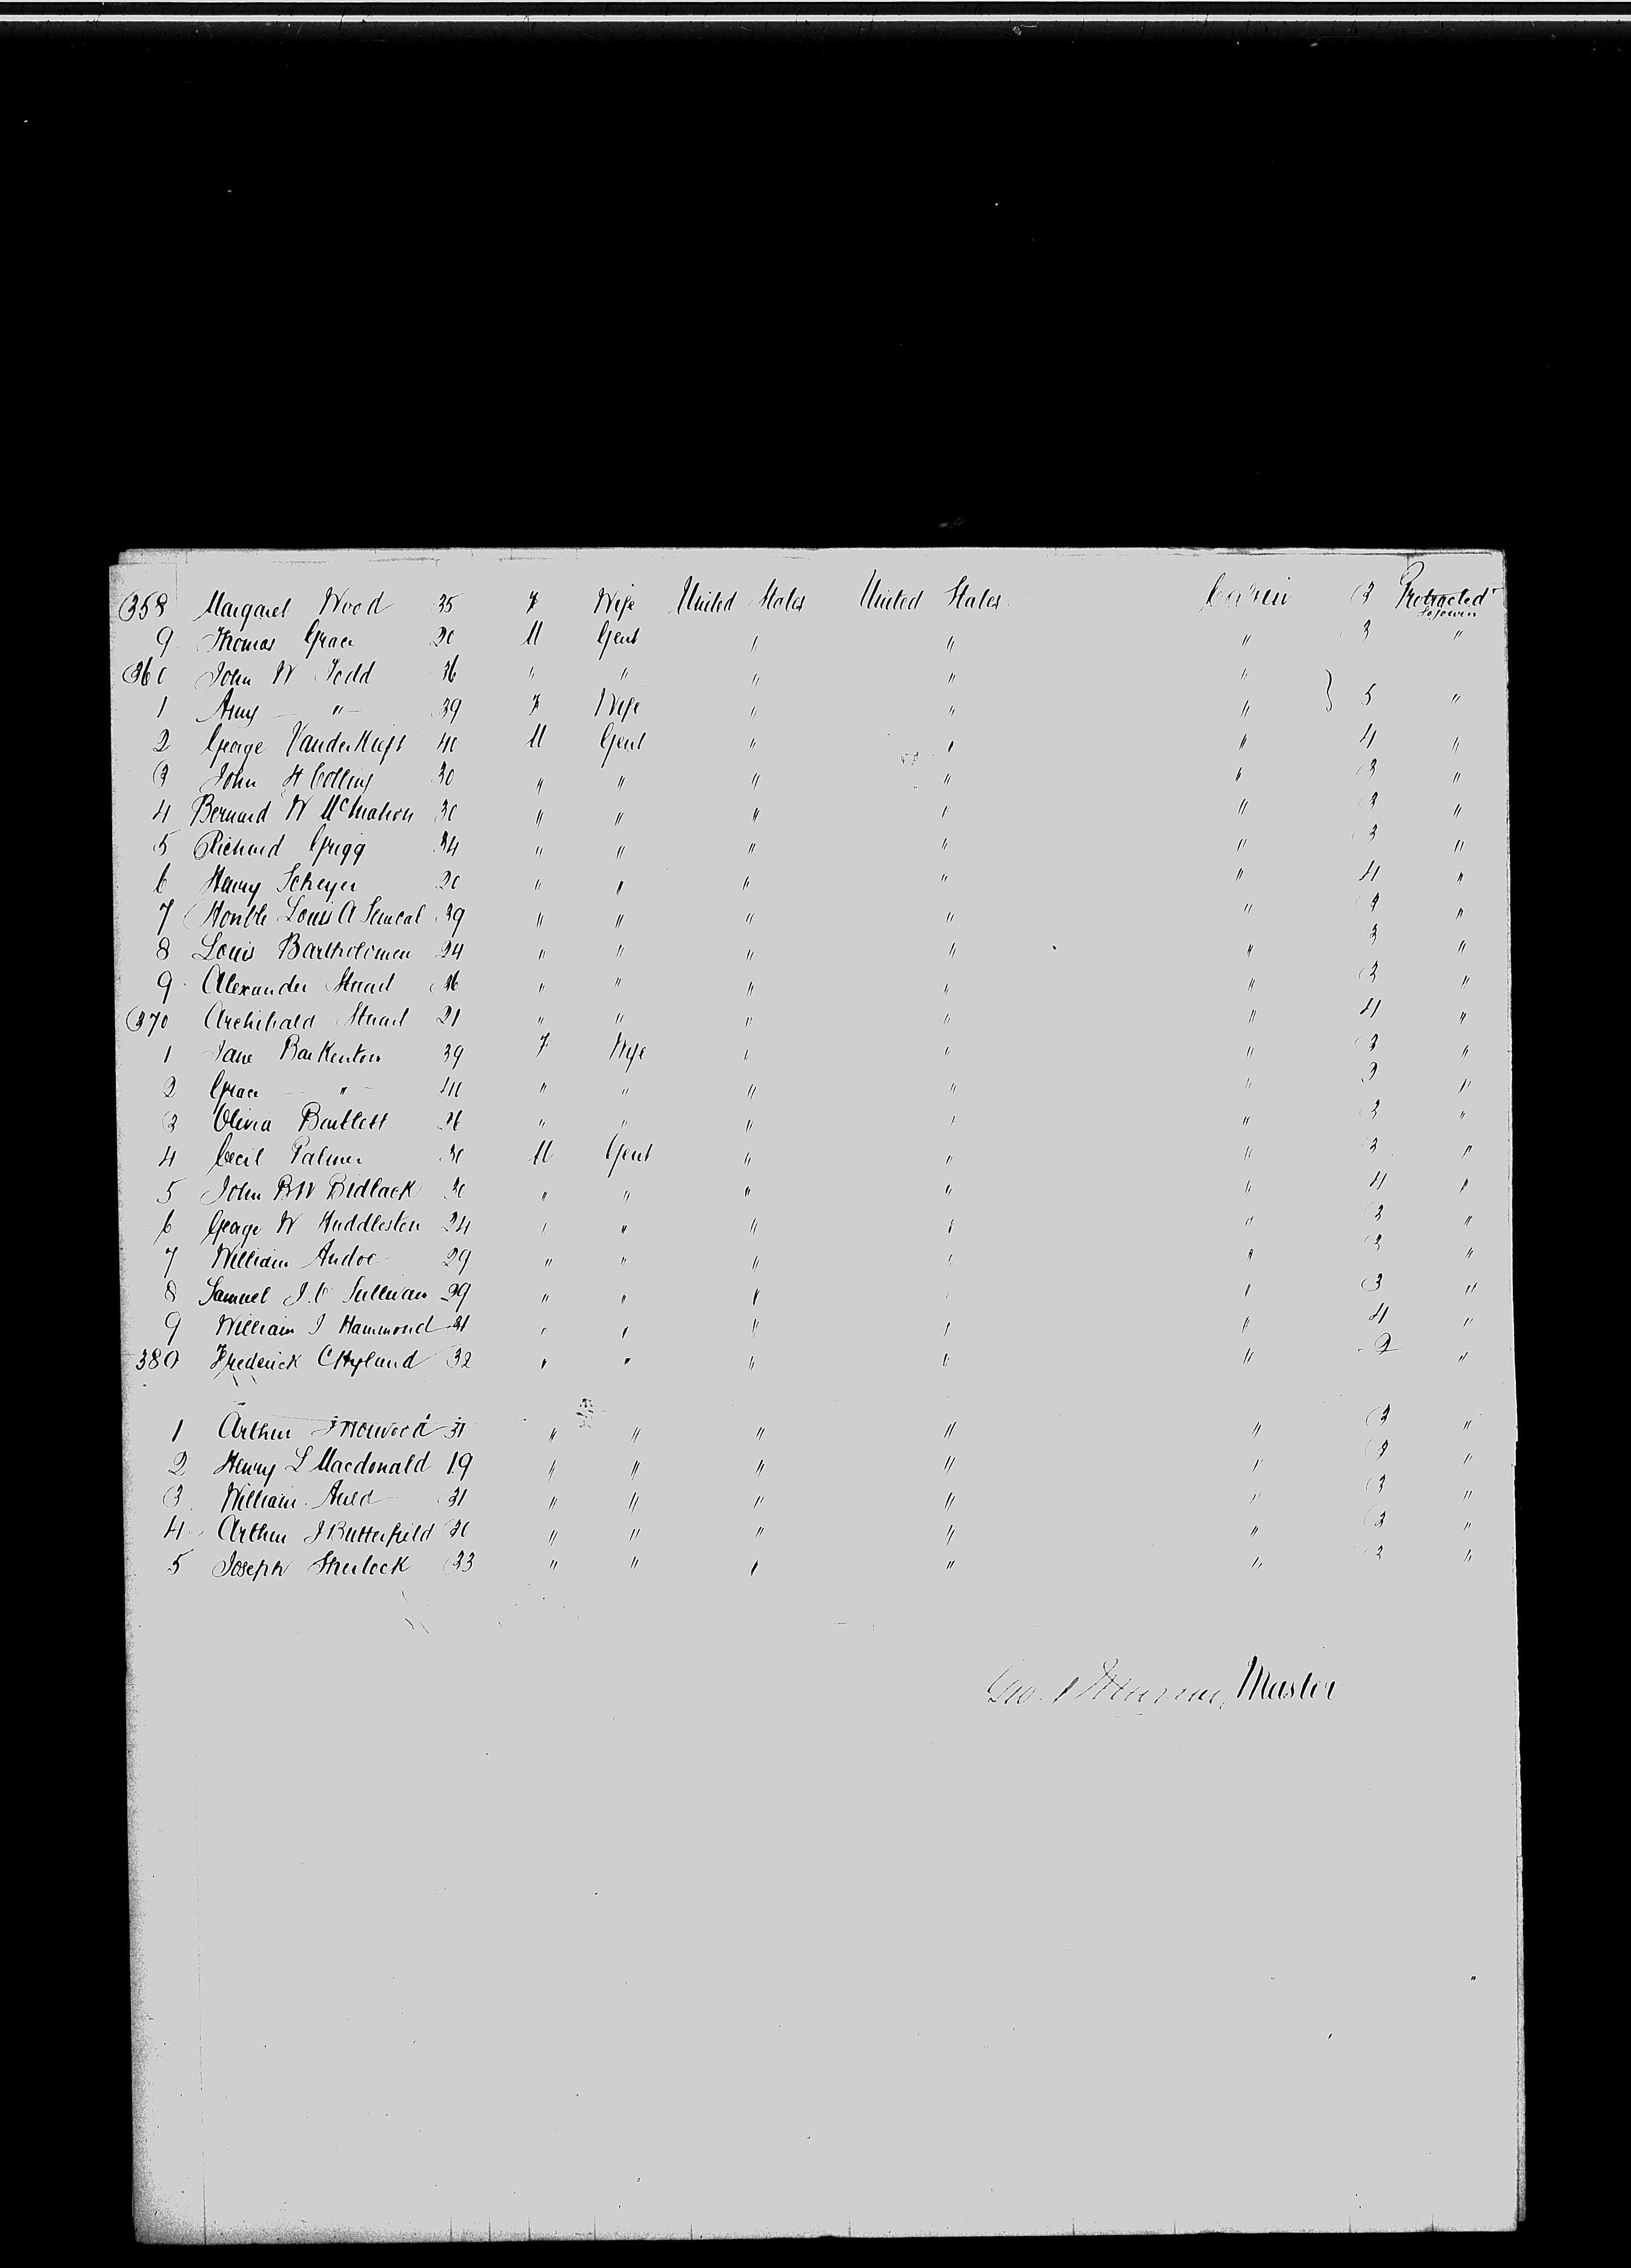 358 Margaret Wood 35 F Wife United States United States Cabin 3 Protracted Sojourn
9 Thomas Grace 20 M Gent " " " 3 "
360 John W Todd 36 " " " " "
1 Amy — " — 39 F Wife " " " } 5 "
2 George 40 M Gent " " " 4 "
3 John H Colling 30 " " " " " 3 "
4 Bernard W McMahon 30 " " " " " 3 "
5 Richard Grigg 34 " " " " " 3 "
6 Henry Scheyer 20 " " " " " 4 "
7 Honble Louis A Senecal 39 " " " " " 3 "
8 Louis Bartholomew 24 " " " " " 3 "
9 Alexander Stuart 36 " " " " " 3 "
370 Archibald Stuart 21 " " " " " 4 "
1 Jane Barkenton 39 F Wife " " " 3 "
2 Grace — " — 40 " " " " " 3 "
3 Olivia Bartlett 26 " " " " " 3 "
4 Cecil Palmer 30 M Gent " " " 3 "
5 John BW Bidlack 30 " " " " " 4 "
6 George W Huddleston 24 " " " " " 3 "
7 William Andoe 29 " " " " " 3 "
8 Samuel J.O Sullivan 29 " " " " " 3 "
9 William J Hammond 31 " " " " " 4 "
380 Frederick C Hyland 32 " " " " " 2 "
1 Arthur J Norwood 31 " " " " " 3 "
2 Henry L Macdonald 19 " " " " " 3 "
3 William Auld 31 " " " " " 3 "
4 Arthur J Butterfield 30 " " " " " 3 "
5 Joseph Sherlock 33 " " " " " 3 "
Geo. Murray Master